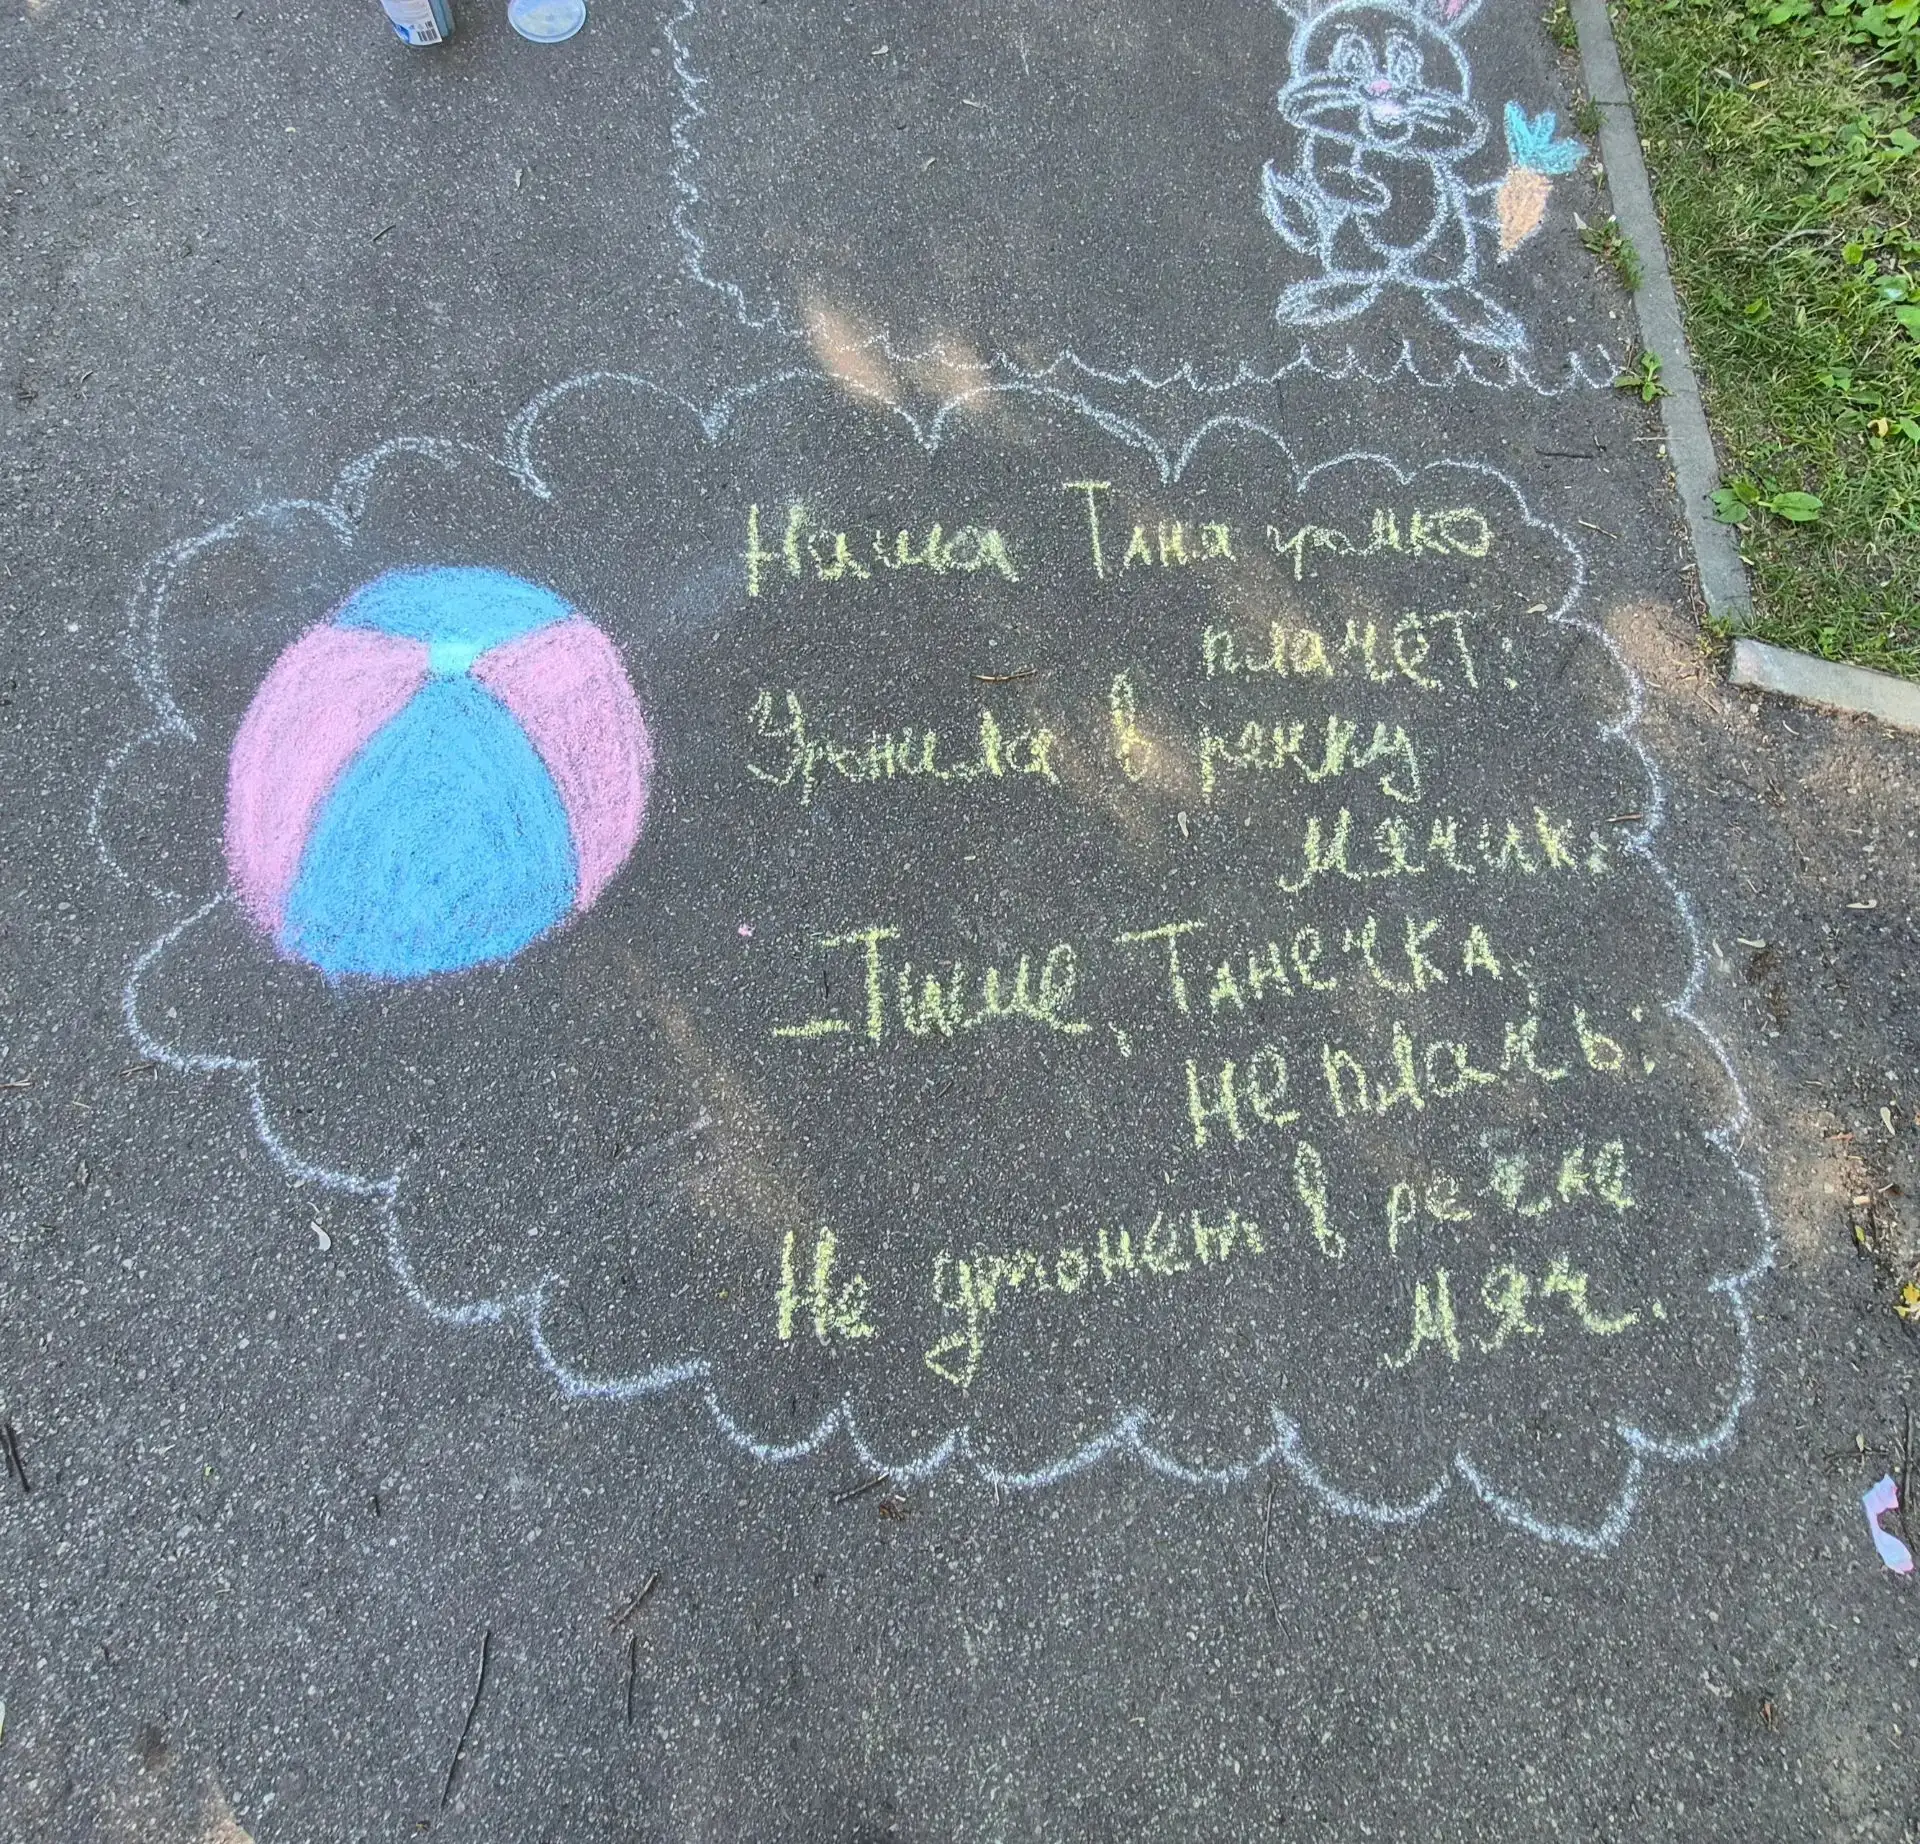 Наша Таня громко
плачет:
Уронила в речку
мячик.
– Тише, Танечка,
не плачь:
Не утонет в речке
мяч.